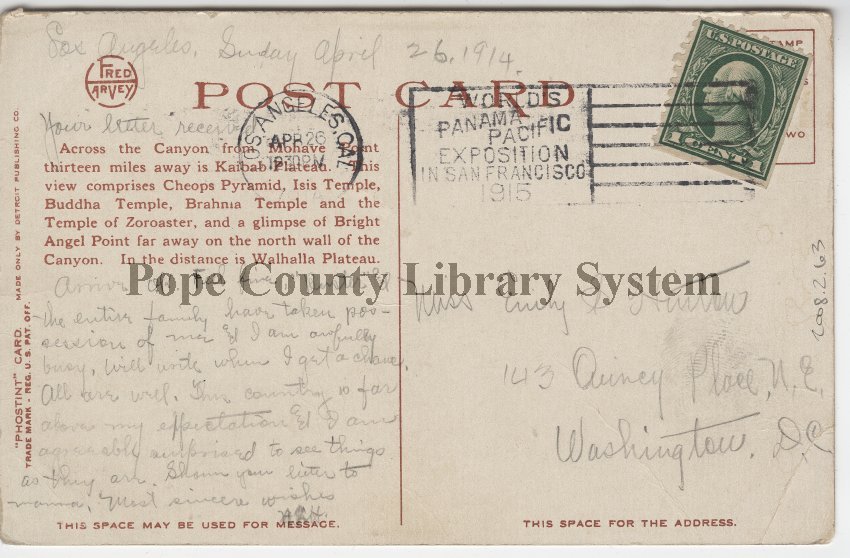 Los Angeles, Sunday April 26, 1914
FRED
HARVEY
POST CARD
Your letter received
LOS ANGELES, CAL.
APR 26
12 30 PM
WORLD'S
PANAMA
PACIFIC
EXPOSITION
IN SAN FRANCISCO
1915
U.S. POSTAGE
1 CENTS 1
STAMP
TWO
Across the Canyon from Mohave Point
thirteen miles away is Kaibab Plateau. This
view comprises Cheops Pyramid, Isis Temple,
Buddha Temple, Brahnia Temple and the
Temple of Zoroaster, and a glimpse of Bright
Angel Point far away on the north wall of the
Canyon. In the distance is Walhalla Plateau.
Pope County Library System
the entire family have taken pos-
session of me & I am awfully
busy, will write when I get a chance.
All are well. This country is far
above my expectation & I am
agreeably surprised to see things
as they are. Shown your letter to
mamma. Most sincere wishes
Miss
143 Quincy Place, N.E.
Washington, D.C.
2008.2.63
"PHOSTINT" CARD. MADE ONLY BY DETROIT PUBLISHING CO.
TRADE MARK - REG. U. S. PAT. OFF.
THIS SPACE MAY BE USED FOR MESSAGE.
THIS SPACE FOR THE ADDRESS.